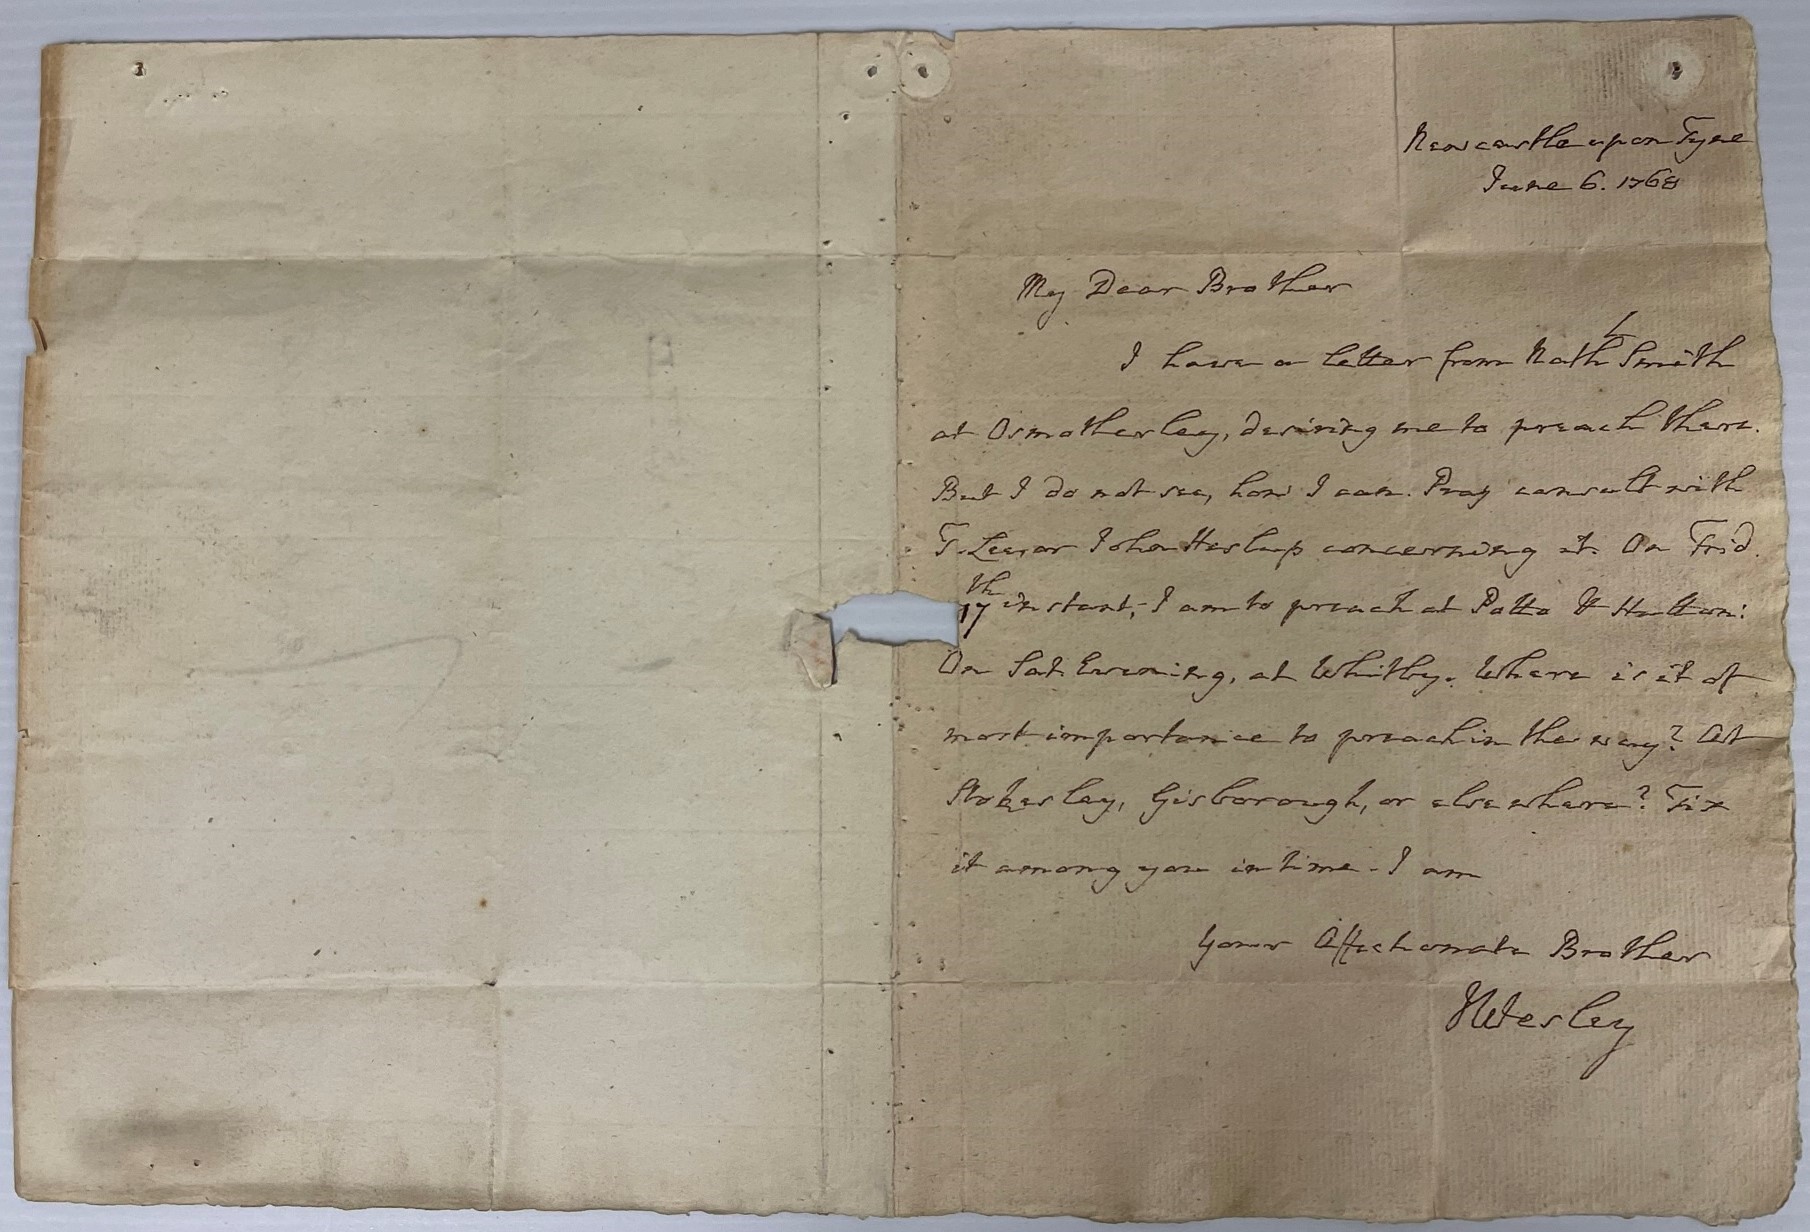 Newcastle upon Tyne
June 6. 1768
My Dear Brother
I have a letter from Nathl Smith
at Osmotherley, desiring me to preach there.
But I do not see, how I can. Pray consult with
T. Lee, or John Heslup concerning it. On Frid.
17th instant, I am to preach at Potto & Hutton:
On Sat. Evening, at Whitby. Where is it of
most importance to preach in the way? At
Stokesley, Gisborough, or elsewhere? Fix
it among you in time. I am
Your Affectionate Brother
JWesley